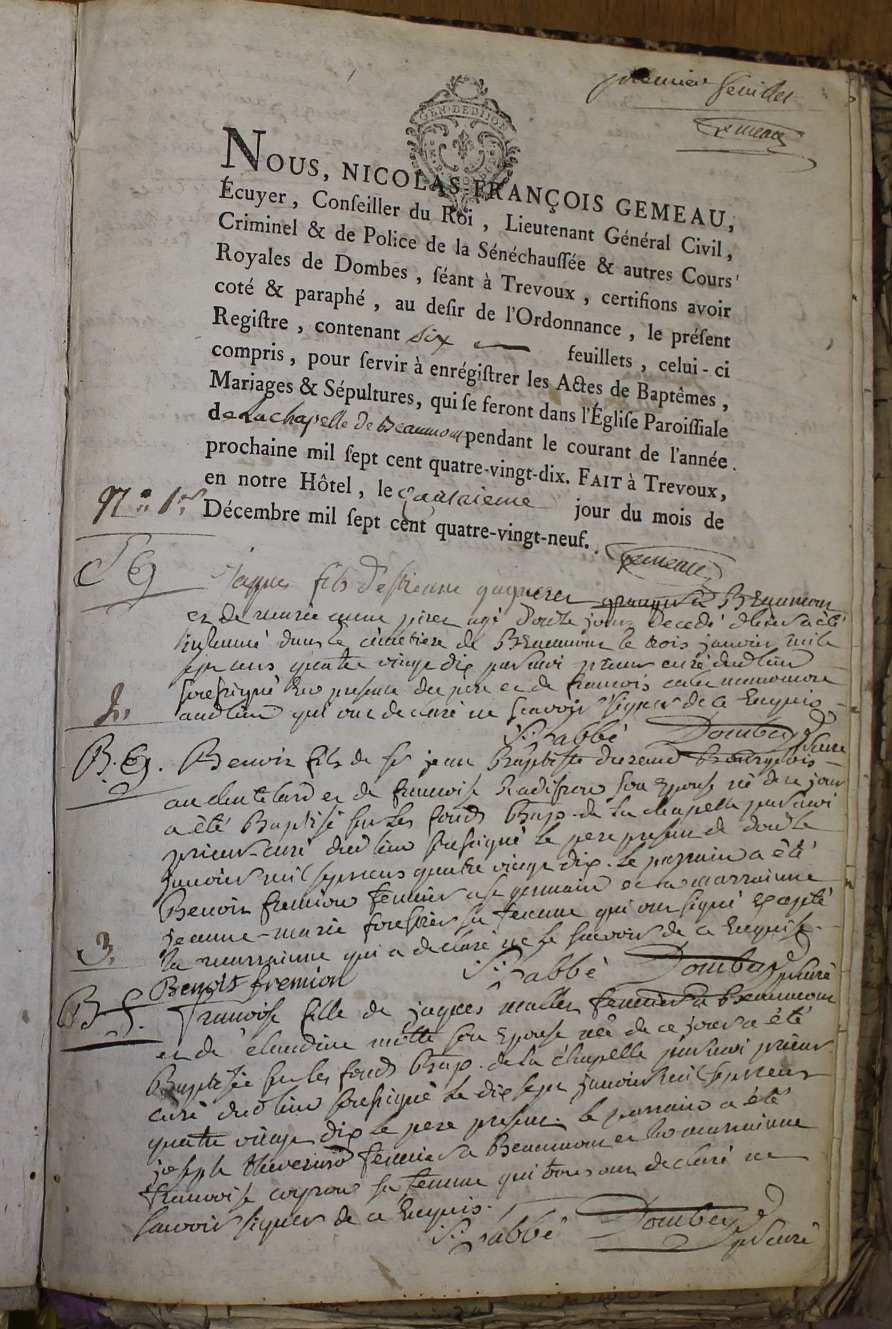 premier feuillet
Gemeau
GEN. DE DIJON
NOUS, NICOLAS FRANÇOIS GEMEAU,
Écuyer, Conſeiller du Roi, Lieutenant Général Civil,
Criminel & de Police de la Sénéchauſſée & autres Cours
Royales de Dombes, ſéant à Trevoux, certifions avoir
coté & paraphé, au deſir de l'Ordonnance, le préſent
Regiſtre, contenant six feuillets, celui-ci
compris, pour ſervir à enrégiſtrer les Actes de Baptêmes,
Mariages & Sépultures, qui ſe feront dans l'Égliſe Paroiſſiale
de La chapelle de Beaumont pendant le courant de l'année
prochaine mil ſept cent quatre-vingt-dix. FAIT à Trevoux,
en notre Hôtel, le quatrieme jour du mois de
Décembre mil ſept cent quatre-vingt-neuf.
Gemeau
n.° 1.er
S G
Jaques fils d'estienne Beaumont
et de marie anne agé Douze jours decedé
inhumé dans le cimetiere de Beaumont le trois janvier mil
sept cens quatre vingt dix par moi prieur curé dud lieu
soussigné en presence du pere et de francois
aud lieu qui ont declaré ne scavoir signer de ce Enquis
2.
J: Labbé Dombey p curé
B. G. Benoit fils de sr jean Baptiste Bourgeois
au chatelard et de francoise son Epouse né de ce jour
a été Baptisé sur les fonds Bap. de La chapelle par moi
prieur-curé dud lieu soussigné le pere present de douze
janvier mil sept cens quatre vingt dix. le parrain a été
Benoit fremion fermier a st germain et la marrainne
jeanne-marie forestier sa femme qui ont signé excepté
la marrainne qui a declaré ne le scavoir de ce Enquise.
3.
Benoit fremion J: Labbé Dombey p curé
B. f. francoise fille de jaques fermier a Beaumont
et de claudine motte son Epouse née de ce jour a été
Baptisée sur les fonds Bap. de La chapelle par moi prieur
curé dud lieu soussigné le dix sept janvier mil sept cens
quatre vingt dix le pere present. le parrain a été
joseph fermier a Beaumont et la marrainne
francoise sa femme qui tous ont declaré ne
scavoir signer de ce Enquis.
J: Labbé Dombey p curé